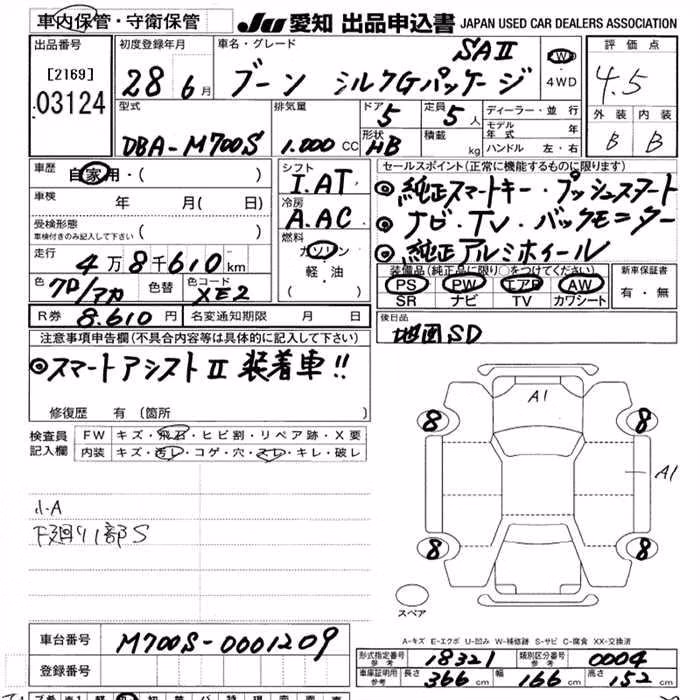 車内保管・守衛保管
JU 愛知 出品申込書 JAPAN USED CAR DEALERS ASSOCIATION
出品番号
[2169]
03124
初度登録年月
28年 6月
車名・グレード
SAⅡ
ブーン シルクGパッケージ
FWD
4WD
評価点
4.5
外装 内装
B B
型式
DBA-M700S
排気量
1.000 CC
ドア 5
定員 5人
形状 HB
積載 kg
ディーラー・並行
モデル年式 年
ハンドル 左・右
車歴 自家用・( )
車検 年 月( 日)
受検形態 ( )
車検付きのみ記入して下さい
走行 4万8千610km
色 クロ/マカ 色替 色コード XE2
シフト
I.AT
冷房
A.AC
燃料
ガソリン
・
軽・油
( )
セールスポイント(正常に機能するものに限ります)
◎純正スマートキー・プッシュスタート
◎ナビ・TV・バックモニター
◎純正アルミホイール
装備品(純正品に限り○をつけてください)
PS PW エアB AW
SR ナビ TV カワシート
新車保証書
有・無
R券 8.610円 名変通知期限 月 日
後日品
地図SD
注意事項申告欄(不具合内容等は具体的に記入して下さい)
◎スマートアシストⅡ 装着車!!
修復歴 有(箇所 )
検査員記入欄
FW キズ・飛石・ヒビ割・リペア跡・X要
内装 キズ・汚レ・コゲ・穴・スレ・キレ・破レ
小A
下廻り1部S
A1
8 8
A1
8 8
スペア
A-キズ E-エクボ U-凹み W-補修跡 S-サビ C-腐食 XX-交換済
車台番号 M700S-0001209
登録番号
形式指定番号 参考 18321 類別区分番号 参考 0004
車庫証明用 参考 長さ 366cm 幅 166cm 高さ 152cm